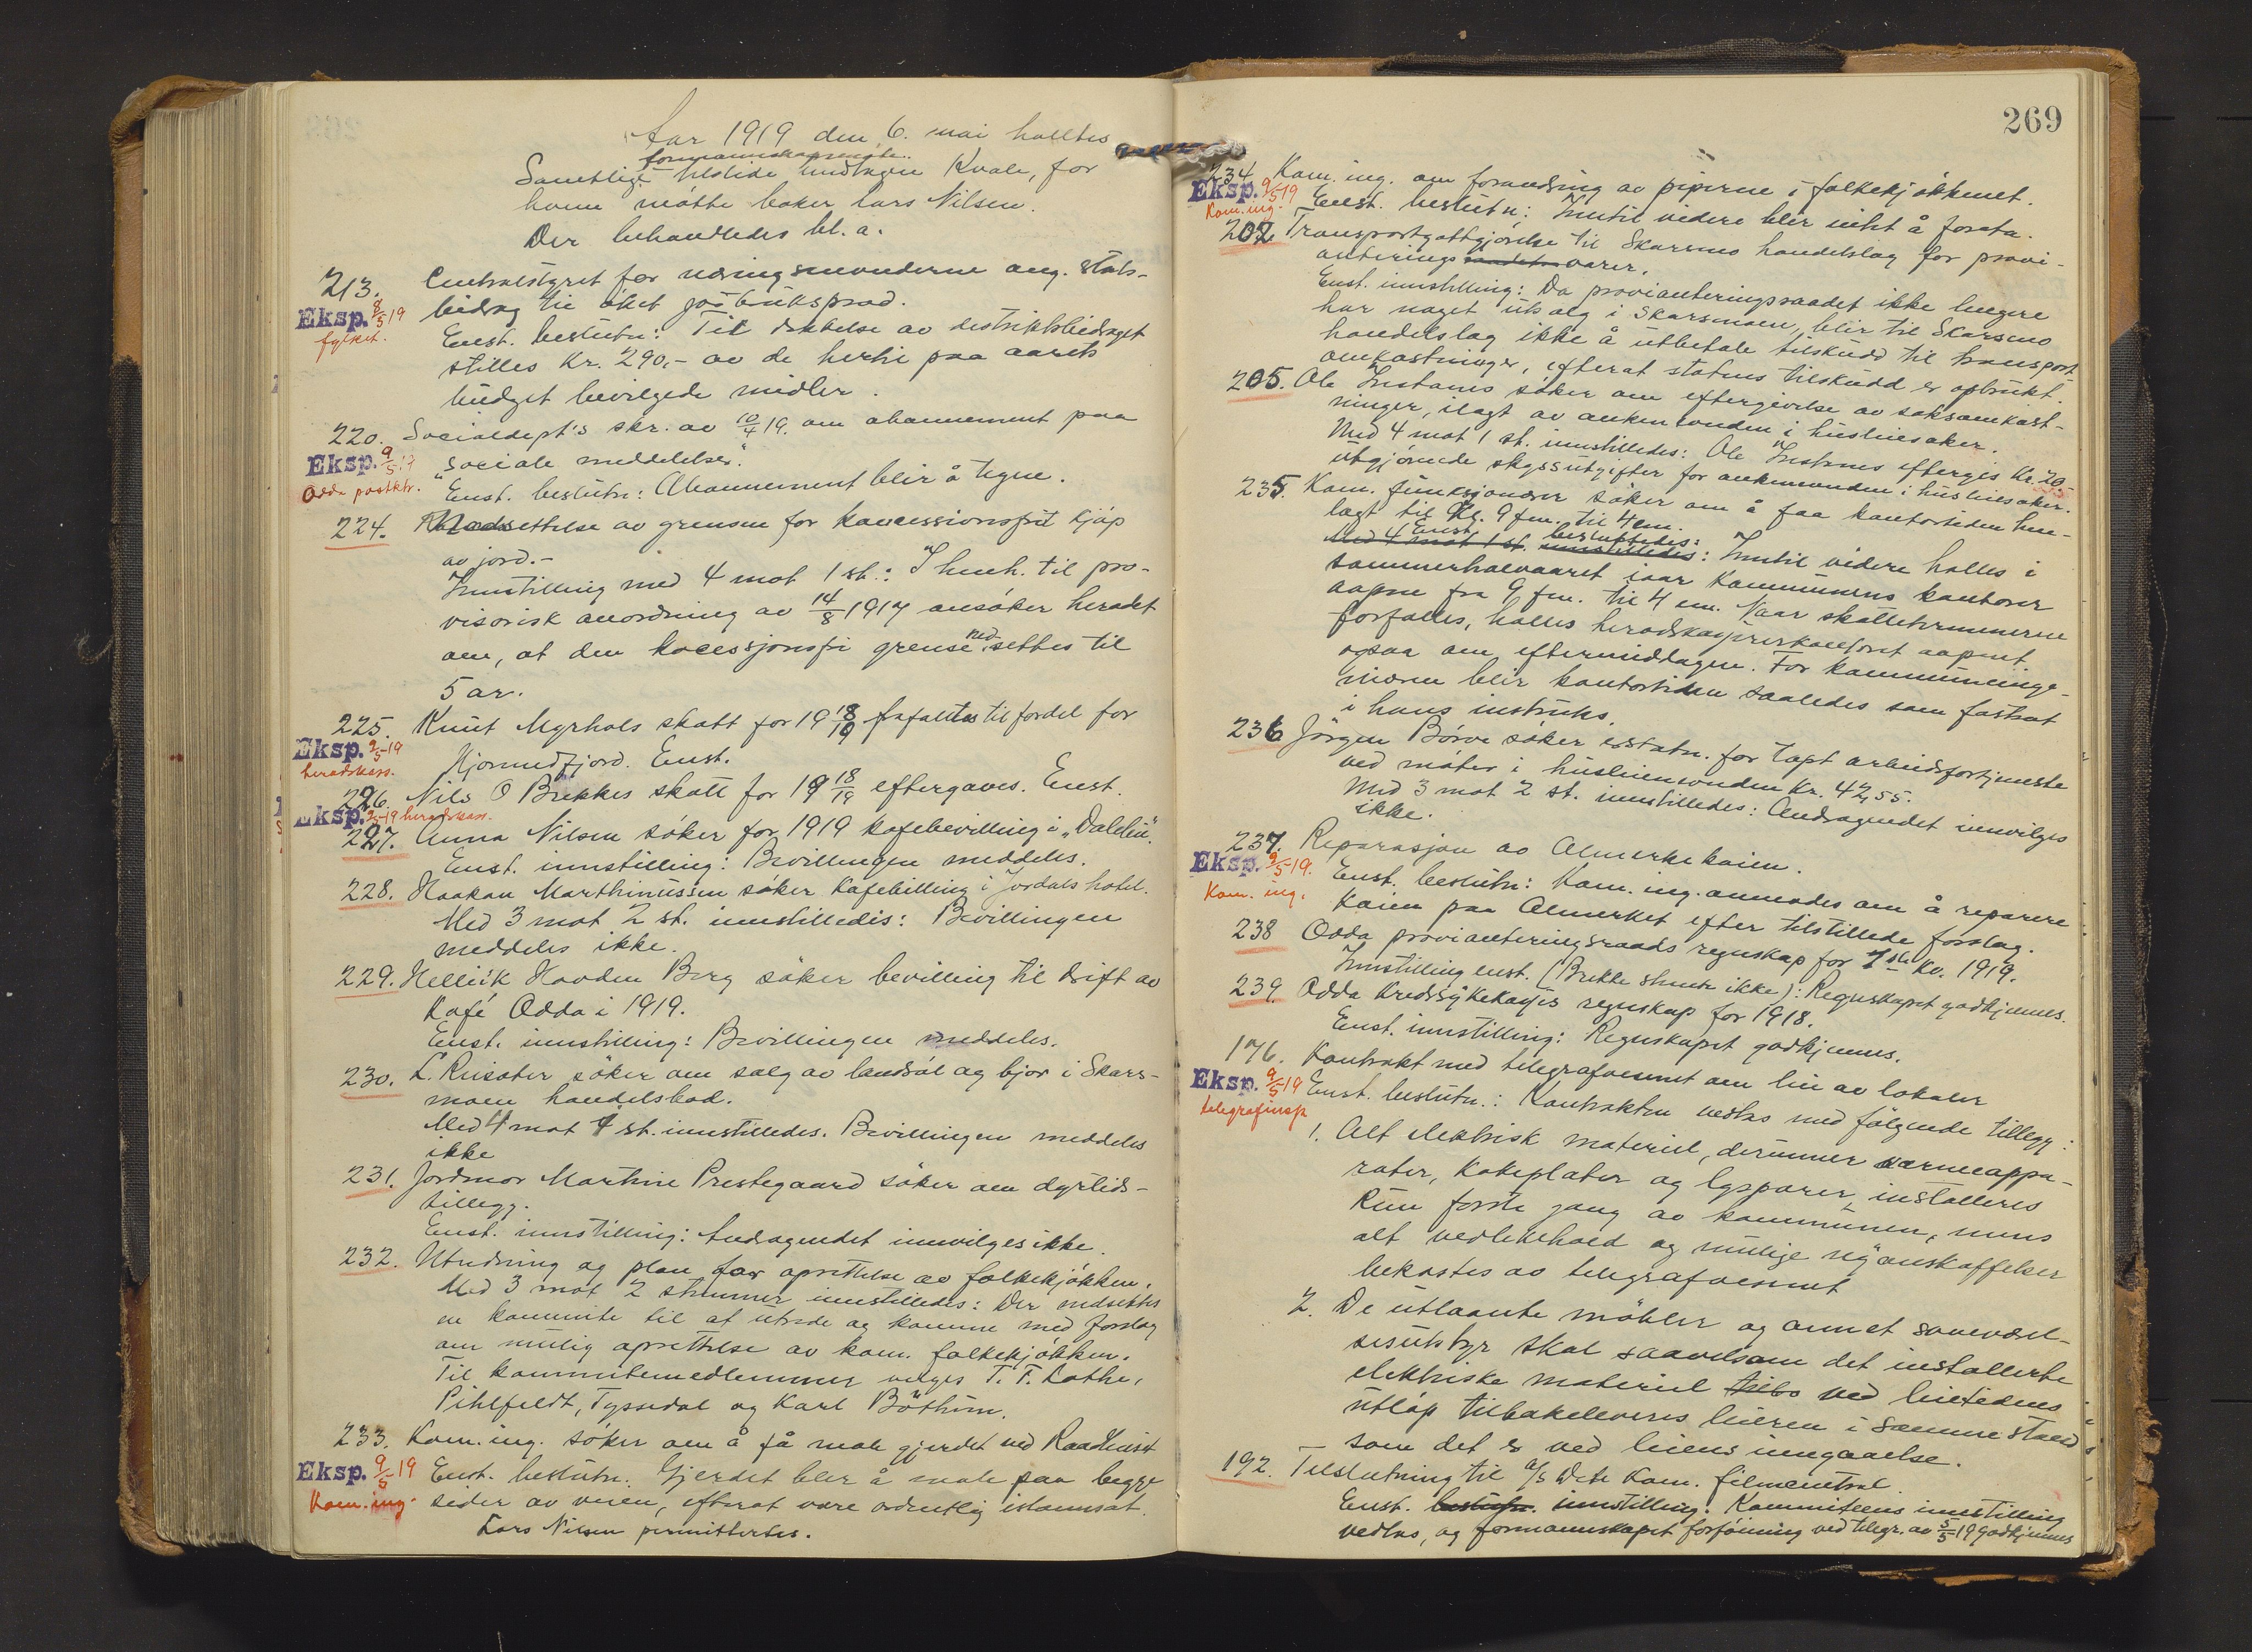 Aar 1919 den 6. mai holltes
formannskapsmøte.
Samtlige tilstede undtagen Kvale, for
ham møtte baker Lars Nilsen.
Der behandledes bl. a.
213. Centralstyret for næringsnevnderne ang. stats-
Eksp. 8/5 19 bidrag til øket jordbruksprod.
fylket. Enst. beslutn: Til dekkelse av distriktsbidraget
stilles Kr. 290,- av de hertil paa aarets
budget bevilgede midler.
220. Socialdept's skr. av 10/4 19. om abonnement paa
Eksp. 9/5 19 "sociale meddelelser".
Odda postktr. Enst. beslutn: Abonnement blir å tegne.
224. Nedsettelse av grensen for koncessionsfrit kjøp
av jord.-
Innstilling med 4 mot 1 st.: I henh. til pro-
visorisk anordning av 14/8 1917 ansøker heradet
om, at den kocessjonsfri grense nedsettes til
5 ar.
225. Knut Myrhols skatt for 19 18/19 frafalles til fordel for
Eksp. 9/5-19 Hjørundfjord. Enst.
heradskass.
226. Nils O Brekkes skatt for 19 18/19 eftergaves. Enst.
Eksp. 9/5-19 heradskass.
227. Anna Nilsen søker for 1919 kafebevilling i "Dalelii".
Enst. innstilling: Bevillingen meddeles.
228. Haakon Marthinussen søker kafebilling i Jordals hotel.
Med 3 mot 2 st. innstilledes: Bevillingen
meddeles ikke.
229. Helleik Hovden Berg søker bevilling til drift av
Kafé Odda i 1919.
Enst. innstilling: Bevillingen meddeles.
230. L. Reisæter søker om salg av landsøl og bjor i Skars-
moen handelsbod.
Med 4 mot 1 st. innstilledes. Bevillingen meddeles
ikke
231. Jordmor Martine Prestegaard søker om dyrtids-
tillegg.
Enst. innstilling: Andragendet innvilges ikke.
232. Utredning og plan for oprettelse av folkekjøkken.
Med 3 mot 2 stemmer innstilledes: Der nedsettes
en kommite til at utrede og komme med forslag
om mulig oprettelse av kom. folkekjøkken.
Til kommitemedlemmer velges T. T. Lothe,
Pihlfeldt, Tyssedal og Karl Bøthun.
233. Kom. ing. søker om å få male gjerdet ved Raadhuset
Eksp. 9/5 19 Enst. beslutn. Gjerdet blir å male paa begge
Kom. ing. sider av veien, efterat være ordentlig istannsat.
Lars Nilsen permittertes.
269
234. Kom. ing. om forandring av piperne i folkekjøkkenet.
Eksp. 9/5 19 Enst. beslutn: Inntil videre blir intet å foreta.
Kom. ing.
202. Transportgottgjørelse til Skarsmo handelslag for provi-
anterings varer.
Enst. innstilling: Da provianteringsraadet ikke lengere
har noget utsalg i Skarsmoen, blir til Skarsmo
handelslag ikke å utbetale tilskudd til transport
omkostninger, efterat statens tilskudd er opbrukt.
205. Ole Instanes søker om eftergivelse av saksomkost-
ninger, ilagt av ankenevnden i husleiesaker.
Med 4 mot 1 st. innstilledes: Ole Instanes eftergis kr. 20.-
utgjørende skyssutgifter for ankenevnden i husleiesaker.
235. Kom. funksjonærer søker om å faa kontortiden hen-
lagt til kl. 9 fm. til 4 em.
Enst. besluttedes:
Med 4 mot 1 st. innstilledes: Inntil videre holles i
sommerhalvaaret iaar kommunens kontorer
aapne fra 9 fm. til 4 em. Naar skatteterminerne
forfalles, holles heradskasserkontoret aapent
ogsaa om eftermiddagen. For kommuneinge-
niøren blir kontortiden saaledes som fastsat
i hans instruks.
236 Jørgen Børve søker erstatn. for tapt arbeidsfortjeneste
ved møter i husleienevnden kr. 42,55.
Med 3 mot 2 st. innstilledes: Andragendet innvilges
ikke.
237. Reparasjon av Almerke kaien.
Eksp. 9/5-19. Enst. beslutn: Kom. ing. anmodes om å reparere
Kom. ing. kaien paa Almerket efter tilstillede forslag.
238 Odda provianteringsraads regnskap for 1ste kv. 1919.
Innstilling enst. (Brekke stemte ikke): Regnskapet godkjennes.
239 Odda kredssykekasses regnskap for 1918.
Enst. innstilling: Regnskapet godkjennes.
176. Kontrakt med telegrafvesenet om leie av lokaler
Eksp. 9/5-19 Enst. beslutn.: Kontrakten vedtas med følgende tillegg:
telegrafinsp
1. Alt elektrisk materiel, derunner varmeappa-
rater, kokeplater og lyspærer, installeres
kun første gang av kommunen, mens
alt vedlikehold og mulige nyanskaffelser
bekostes av telegrafvesenet
2. De utlaante møbler og annet soveværel-
sesutstyr skal saavelsom det installerte
elektriske materiel ved leietidens
utløp tilbakeleveres leieren i samme stand
som det er ved leiens inngaaelse.
192. Tilslutning til A/S Dete kom. filmcentral.
Enst. beslutn. innstilling. Kommiteens innstilling
vedtas, og formannskapet forføining ved telegr. av 5/5 19 godkjennes